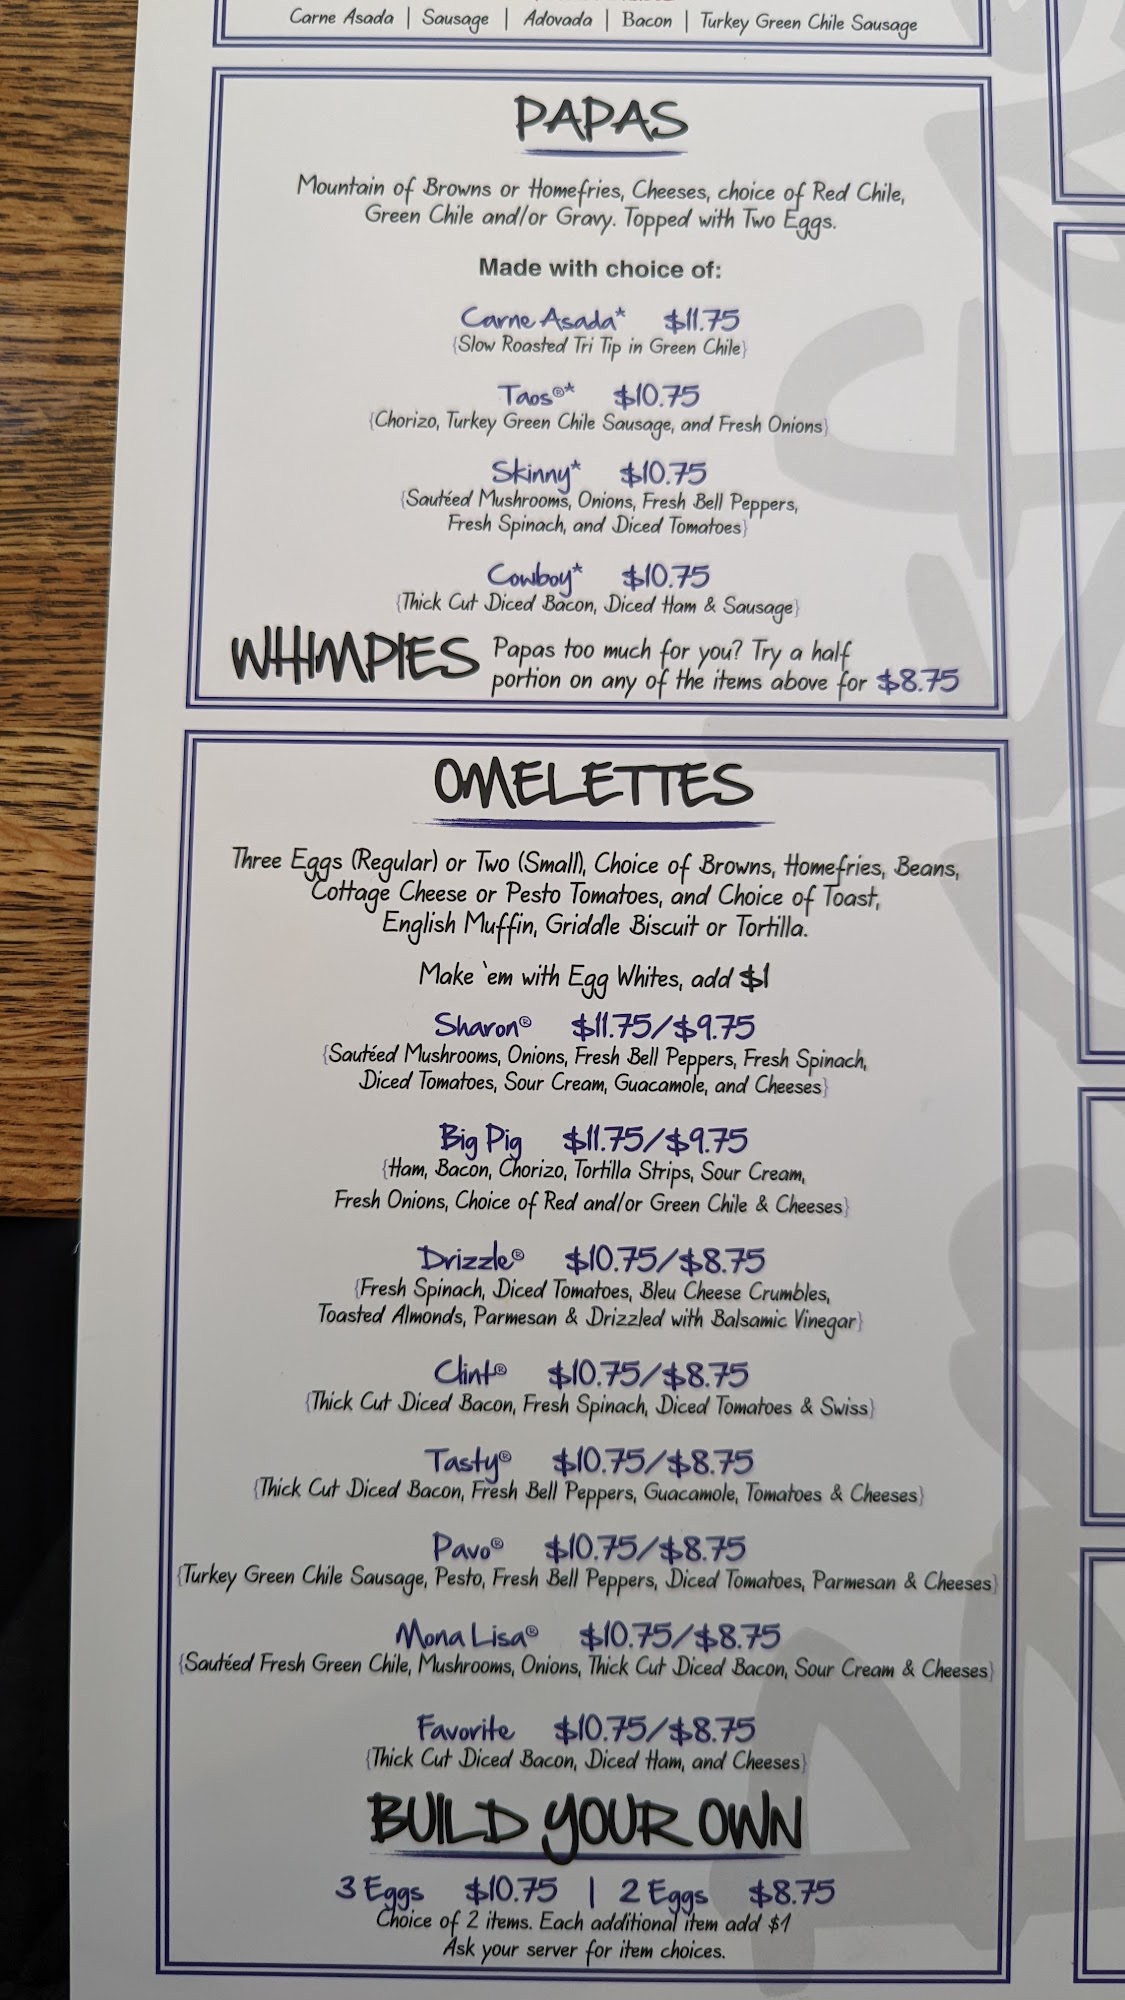 Carne Asada | Sausage | Adovada | Bacon | Turkey Green Chile Sausage
PAPAS
Mountain of Browns or Homefries, Cheeses, choice of Red Chile,
Green Chile and/or Gravy. Topped with Two Eggs.
Made with choice of:
Carne Asada* $11.75
{Slow Roasted Tri Tip in Green Chile}
Taos®* $10.75
{Chorizo, Turkey Green Chile Sausage, and Fresh Onions}
Skinny* $10.75
{Sautéed Mushrooms, Onions, Fresh Bell Peppers,
Fresh Spinach, and Diced Tomatoes}
Cowboy* $10.75
{Thick Cut Diced Bacon, Diced Ham & Sausage}
WHIMPIES Papas too much for you? Try a half
portion on any of the items above for $8.75
OMELETTES
Three Eggs (Regular) or Two (Small), Choice of Browns, Homefries, Beans,
Cottage Cheese or Pesto Tomatoes, and Choice of Toast,
English Muffin, Griddle Biscuit or Tortilla.
Make `em with Egg Whites, add $1
Sharon® $11.75/$9.75
{Sautéed Mushrooms, Onions, Fresh Bell Peppers, Fresh Spinach,
Diced Tomatoes, Sour Cream, Guacamole, and Cheeses}
Big Pig $11.75/$9.75
{Ham, Bacon, Chorizo, Tortilla Strips, Sour Cream,
Fresh Onions, Choice of Red and/or Green Chile & Cheeses}
Drizzle® $10.75/$8.75
{Fresh Spinach, Diced Tomatoes, Bleu Cheese Crumbles,
Toasted Almonds, Parmesan & Drizzled with Balsamic Vinegar}
Clint® $10.75/$8.75
{Thick Cut Diced Bacon, Fresh Spinach, Diced Tomatoes & Swiss}
Tasty® $10.75/$8.75
{Thick Cut Diced Bacon, Fresh Bell Peppers, Guacamole, Tomatoes & Cheeses}
Pavo® $10.75/$8.75
{Turkey Green Chile Sausage, Pesto, Fresh Bell Peppers, Diced Tomatoes, Parmesan & Cheeses}
Mona Lisa® $10.75/$8.75
{Sautéed Fresh Green Chile, Mushrooms, Onions, Thick Cut Diced Bacon, Sour Cream & Cheeses}
Favorite $10.75/$8.75
{Thick Cut Diced Bacon, Diced Ham, and Cheeses}
BUILD YOUR OWN
3 Eggs $10.75 | 2 Eggs $8.75
Choice of 2 items. Each additional item add $1
Ask your server for item choices.